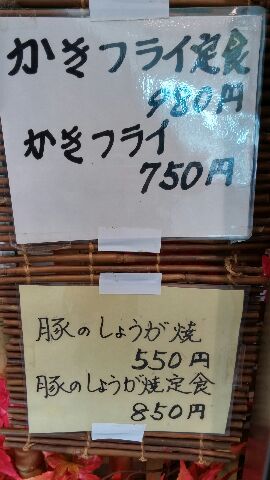 かきフライ定食
980円
かきフライ
750円
豚のしょうが焼
550円
豚のしょうが焼定食
850円